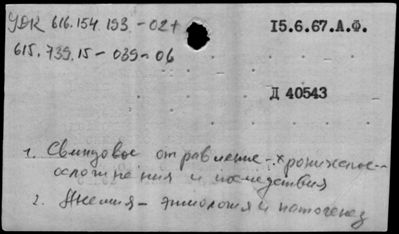 УДК 616.154.193-02+
15.6.67.А.Ф.
615.739.15-039-06
Д 40543
1. Свинцовое отравление - хроническое -
осложнения и последствия
2. Анемия - этиология и патогенез